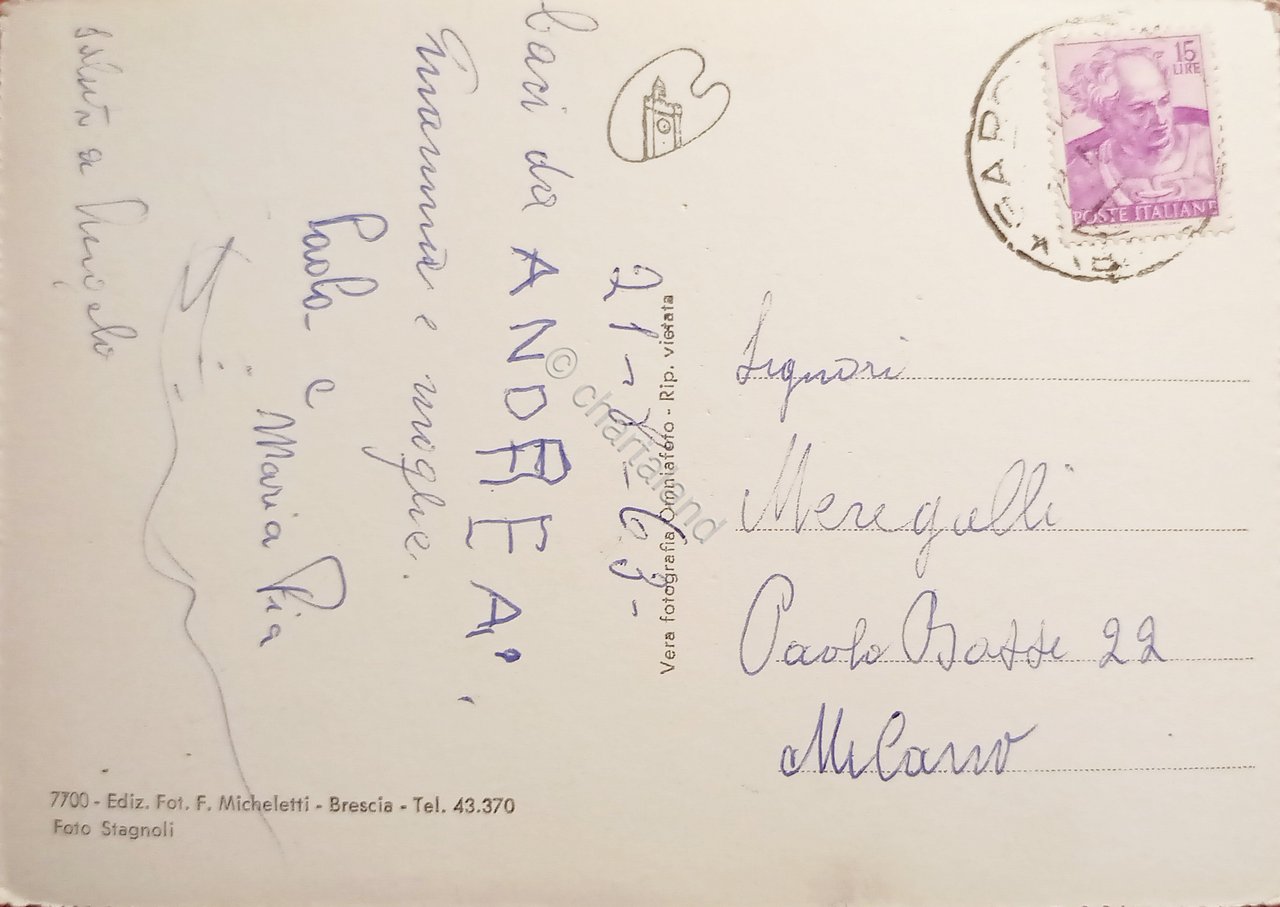 21-7-63-
baci da ANDREA,
Gianni e moglie.
Paola e
Maria Pia
saluti a Angelo
Vera fotografia Omniafoto - Rip. vietata
15
LIRE
POSTE ITALIANE
Signori
Meregalli
Paolo Bassi 22
Milano
7700 - Ediz. Fot. F. Micheletti - Brescia - Tel. 43.370
Foto Stagnoli
© chartaland